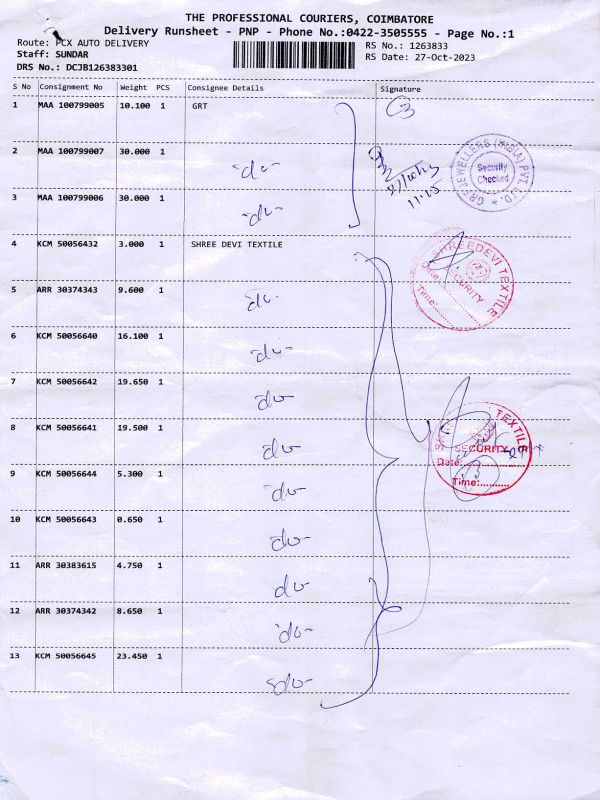 THE PROFESSIONAL COURIERS, COIMBATORE
Delivery Runsheet - PNP - Phone No.:0422-3505555 - Page No.:1
Route: PCX AUTO DELIVERY
RS No.: 1263833
Staff: SUNDAR
RS Date: 27-Oct-2023
DRS No.: DCJB126383301
S No Consignment No Weight PCS Consignee Details Signature
1 MAA 100799005 10.100 1 GRT
2 MAA 100799007 30.000 1 do-
3 MAA 100799006 30.000 1 do-
11:25
GRT JEWELLERS (INDIA) PVT. LTD.
Security
Checked
4 KCM 50056432 3.000 1 SHREE DEVI TEXTILE
SHREEDEVI TEXTILE
SECURITY
Date:
Time:
5 ARR 30374343 9.600 1 do-
6 KCM 50056640 16.100 1 do-
7 KCM 50056642 19.650 1 do-
8 KCM 50056641 19.500 1 do-
TEXTILE
SECURITY
Date:
Time:
9 KCM 50056644 5.300 1 do-
10 KCM 50056643 0.650 1 do-
11 ARR 30383615 4.750 1 do-
12 ARR 30374342 8.650 1 do-
13 KCM 50056645 23.450 1 do-